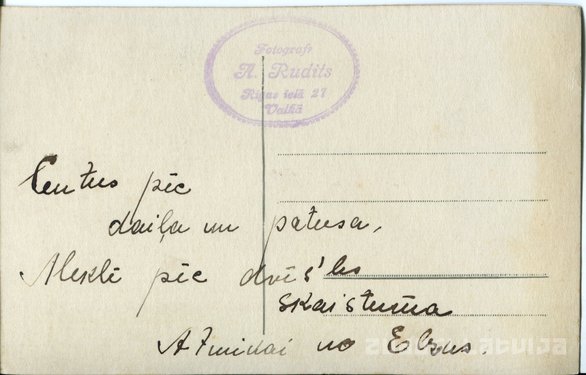 Fotografs
A. Rudīts
Rīgas ielā 27
Valkā
Centies pēc
daiļa un patiesa,
Meklē pēc dvēs'les
skaistuma
Atmiņai no Elzas.